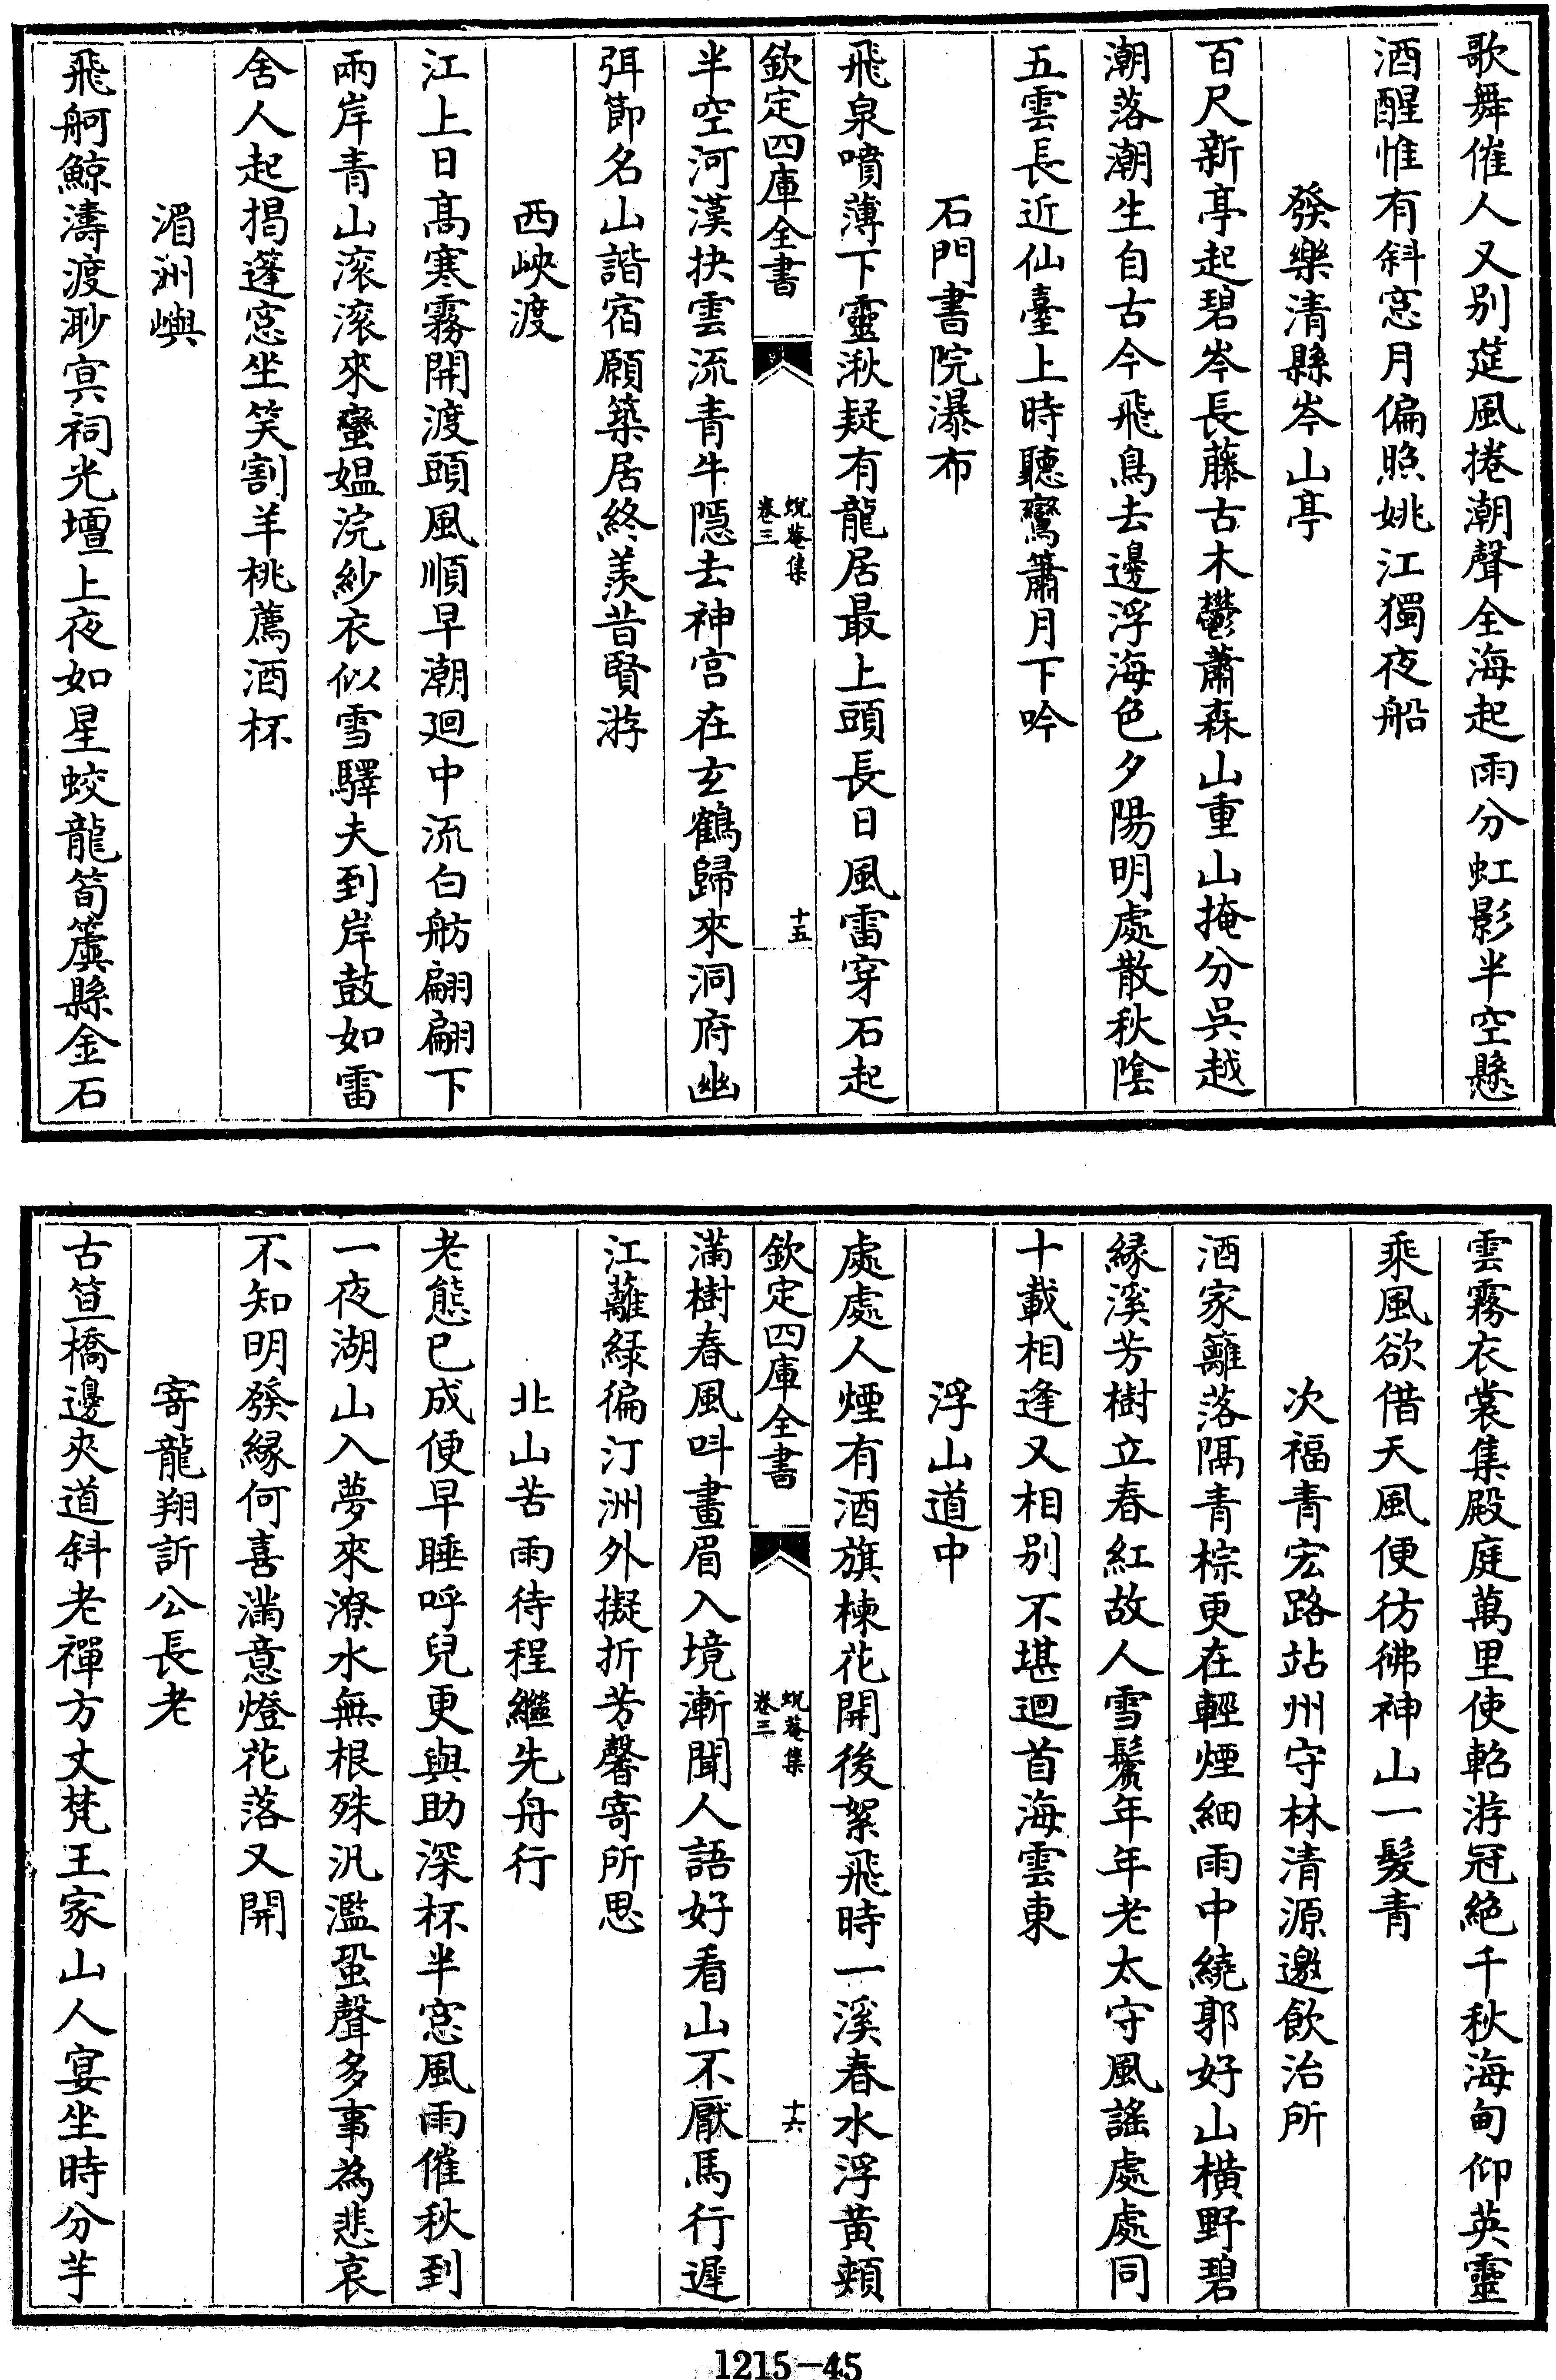 歌舞催人又别莚風捲潮聲全海起雨分虹影半空懸
酒醒惟有斜窓月偏照姚江獨夜船
發樂清縣岑山亭
百尺新亭起碧岑長藤古木鬱蕭森山重山掩分吳越
潮落潮生自古今飛鳥去邊浮海色夕陽明處散秋陰
五雲長近仙臺上時聽鸞簫月下吟
石門書院瀑布
飛泉噴薄下靈湫疑有龍居最上頭長日風雷穿石起
欽定四庫全書
蛻菴集
卷三
十五
半空河漢抉雲流青牛隠去神宫在玄鶴歸來洞府幽
弭節名山諧宿願築居終羨昔賢游
西峽渡
江上日髙寒霧開渡頭風順早潮廻中流白舫翩翩下
兩岸青山滚滚來蠻媪浣紗衣似雪驛夫到岸鼓如雷
舍人起揭篷窓坐笑割羊桃薦酒杯
湄洲嶼
飛舸鯨濤渡渺㝠祠光壇上夜如星蛟龍筍簴縣金石
雲霧衣裳集殿庭萬里使軺游冠絶千秋海甸仰英靈
乘風欲借天風便彷彿神山一髮青
次福青宏路站州守林清源邀飲治所
酒家籬落隔青棕更在輕煙細雨中繞郭好山横野碧
縁溪芳樹立春紅故人雪鬢年年老太守風謠處處同
十載相逢又相别不堪廻首海雲東
浮山道中
處處人煙有酒旗楝花開後絮飛時一溪春水浮黄頰
欽定四庫全書
蛻菴集
卷三
十六
滿樹春風呌畫眉入境漸聞人語好看山不厭馬行遲
江蘺緑徧汀洲外擬折芳馨寄所思
北山苦雨待程繼先舟行
老態已成便早睡呼兒更與助深杯半窓風雨催秋到
一夜湖山入夢來潦水無根殊汎濫蛩聲多事為悲哀
不知明發縁何喜滿意燈花落又開
寄龍翔訢公長老
古笪橋邊夾道斜老禪方丈梵王家山人宴坐時分芋
1215-45